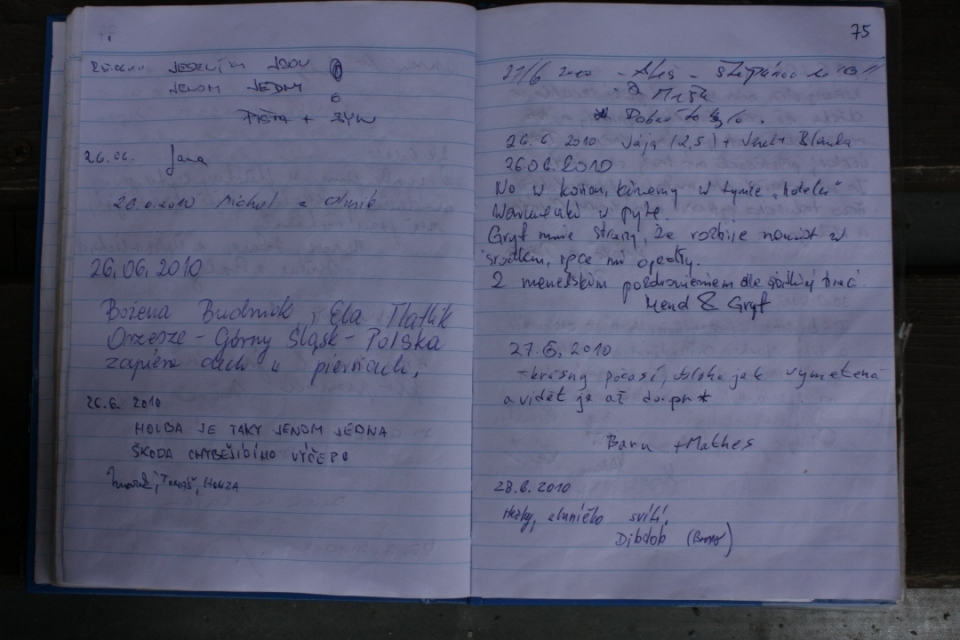 JEDEN
JENOM JEDNY
PIŠTA + SYN
26.06. Jana
26.6.2010 Michal a
26.06.2010
Bożena Budniok, Ela Tlatlik
Orzesze - Górny Śląsk - Polska
zapiera dech w piersiach,
26.6. 2010
HOLBA JE TAKY JENOM JEDNA
ŠKODA CHYBĚJÍCÍHO VÝČEPU
TOMÁŠ, HONZA
75
27/6 - Aleš -
26.6 2010 Jája (2,5) + Blanka
26.06.2010
No w końcu, kinemy w tymie "hotelu"
Warunki w pytę.
Gryf mnie straszy, że rozbije namiot w
środku, ręce mi opadły.
Z menelskim pozdrowieniem dla braci
Mend & Gryf
27.6. 2010
- krásný počasí, obloha jak vymetená
a vidět je až do pr*
Baru + Mathes
28.6.2010
Hezky, sluníčko svítí.
Dibdob